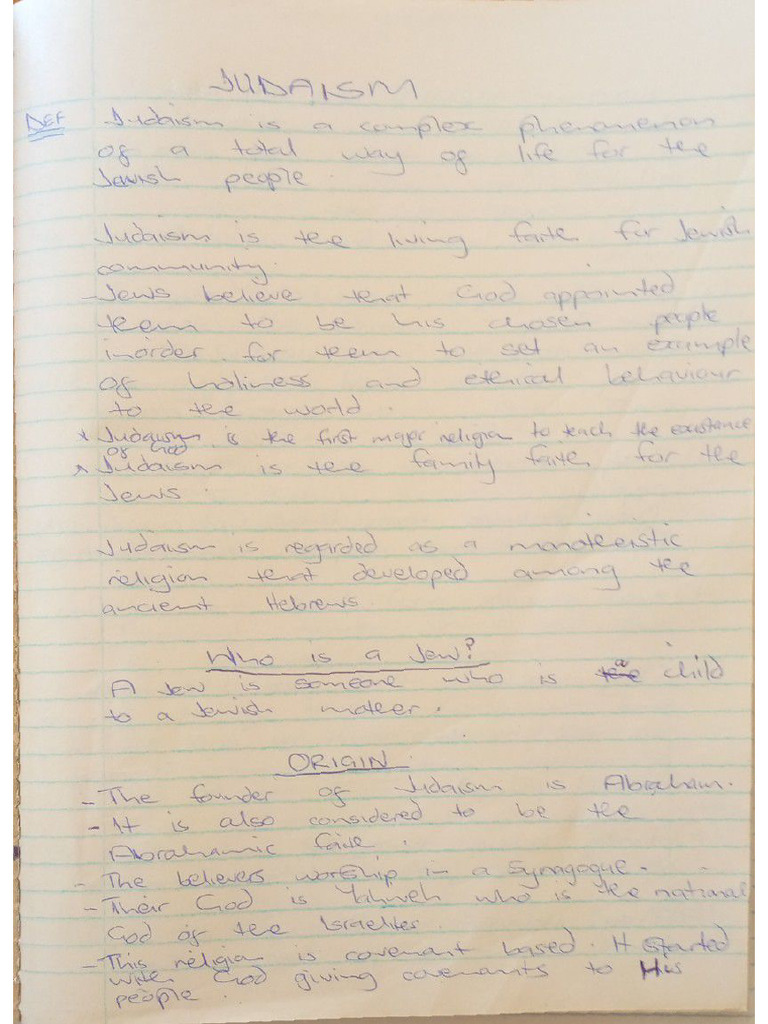 JUDAISM
DEF Judaism is a complex phenomenon
of a total way of life for the
Jewish people.
Judaism is the living faith for Jewish
community.
- Jews believe that God appointed
them to be his chosen people
inorder for them to set an example
of holiness and ethical behaviour
to the world.
* Judaism is the first major religion to teach the existence
of God
* Judaism is the family faith for the
Jews.
Judaism is regarded as a monotheistic
religion that developed among the
ancient Hebrews
Who is a Jew?
A Jew is someone who is a child
to a Jewish mother.
ORIGIN
- The founder of Judaism is Abraham.
- It is also considered to be the
Abrahamic faith.
- The believers worship in a Synagogue.
- Their God is Yahweh who is the national
God of the Israelites.
- This religion is covenant based. It started
with God giving covenants to His
people.